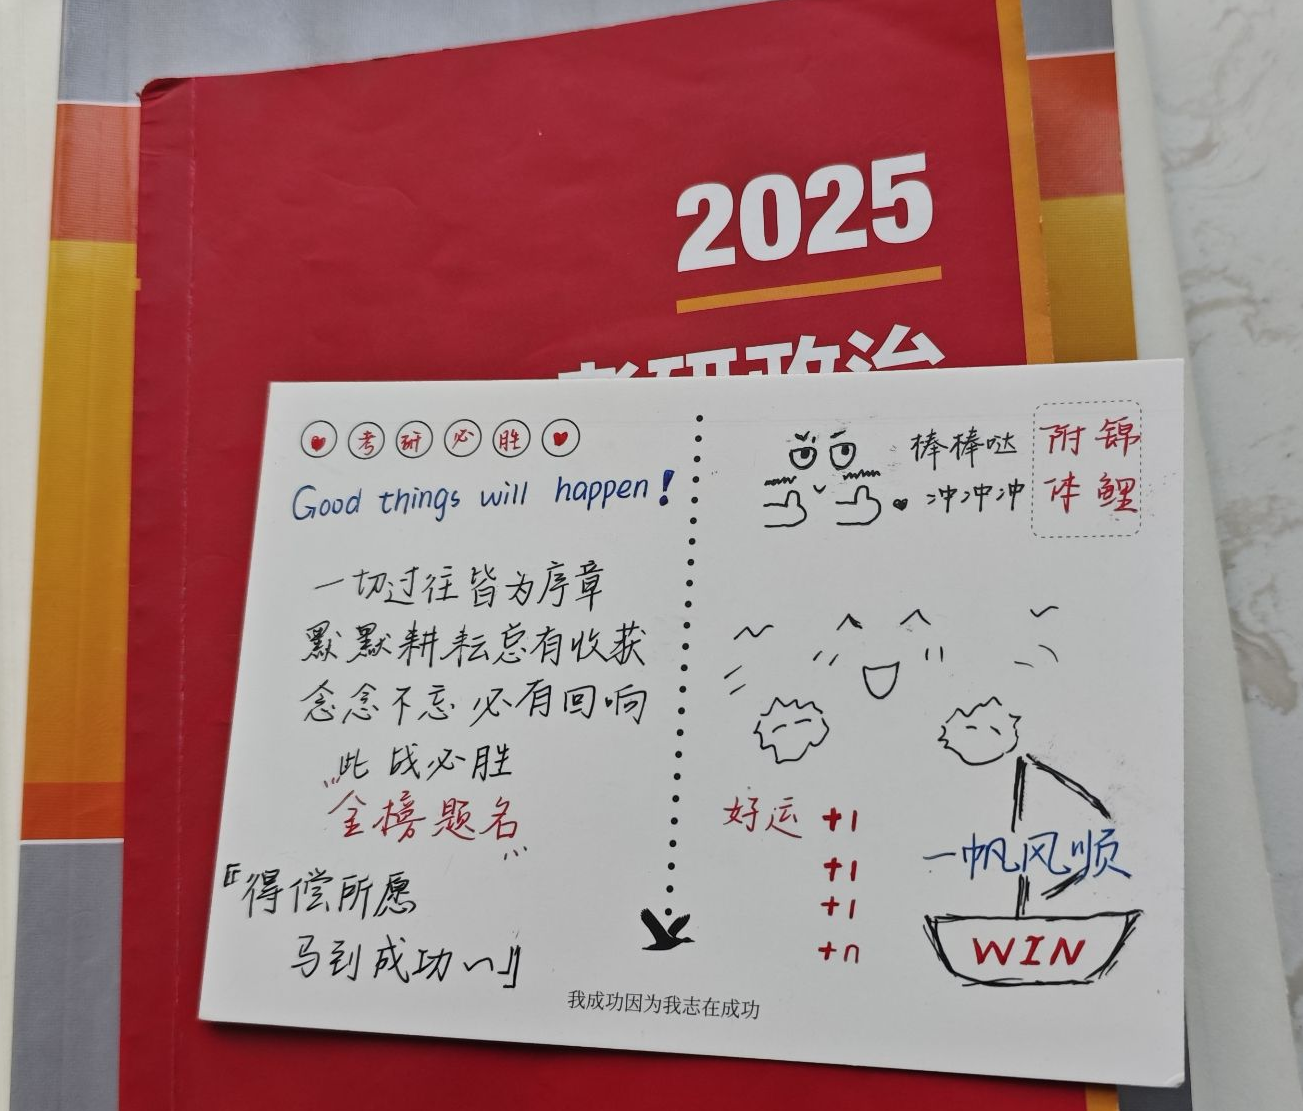 2025
考研政治
♥考研必胜♥
Good things will happen!
一切过往皆为序章
默默耕耘总有收获
念念不忘必有回响
此战必胜
金榜题名
『得偿所愿
马到成功~』
棒棒哒
♥冲冲冲
附锦
体鲤
好运 +1
+1
+1
+n
一帆风顺
WIN
我成功因为我志在成功